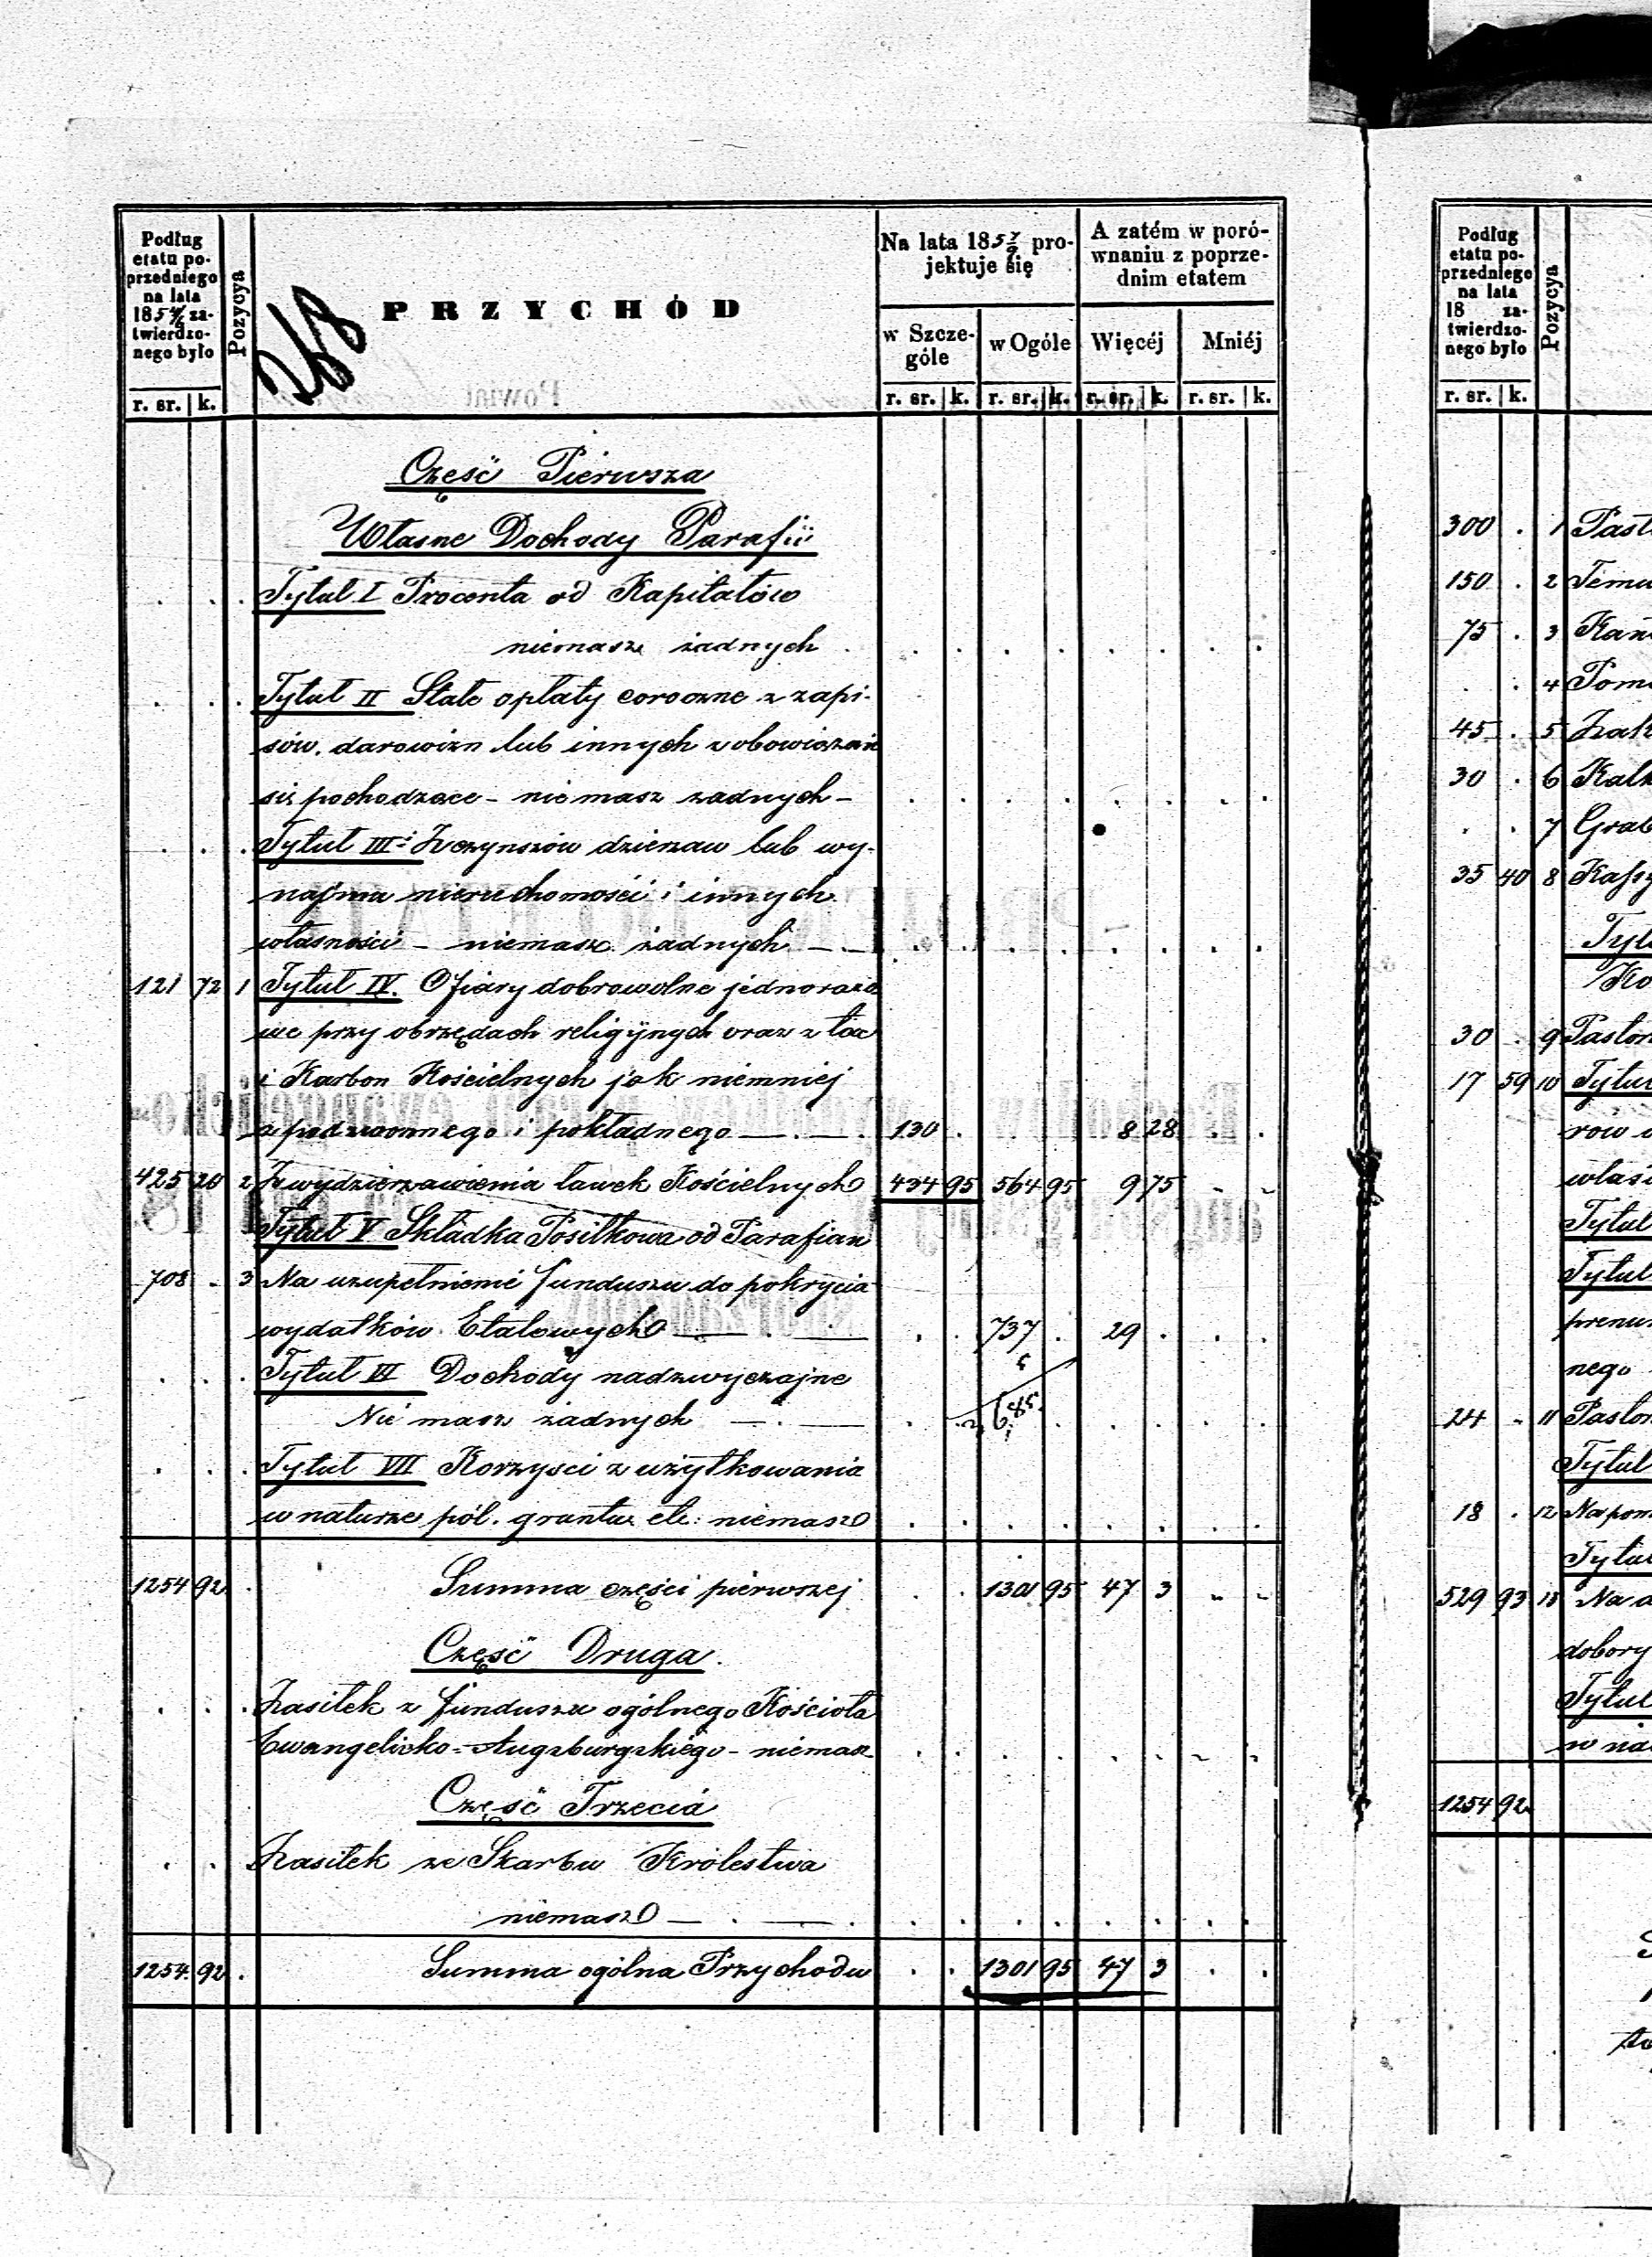 Podług
etatu po-
przedniego
na lata
1854/6 za-
twierdzo-
nego było
r. sr. | k.
Pozycya
PRZYCHÓD
Na lata 1857/9 pro-
jektuje się
w Szcze-
góle
w Ogóle
r. sr. k. r. sr. k.
A zatém w poró-
wnaniu z poprze-
dnim etatem
Więcéj Mniéj
r. sr. k. r. sr. k.
Część Pierwsza
Własne Dochody Parafii
Tytuł I Procenta od Kapitałów
niemasz żadnych
Tytuł II Stałe opłaty coroczne z zapi-
sów, darowizn lub innych zobowiązań
się pochodzące - nie masz żadnych -
Tytuł III Z czynszów dzierzaw lub wy-
najmu nieruchomości i innych
własności - niemasz żadnych -
121 72 1 Tytuł IV. Ofiary dobrowolne jednorazo
we przy obrzędach religijnych oraz z tac
i Karbon Kościelnych jak niemniej
z podzwonnego i pokładnego 130 . 8 28
425 20 2 Z wydzierzawienia ławek Kościelnych 434 95 564 95 9 75
Tytuł V Składka Posiłkowa od Parafian
708 - 3 Na uzupełnienié funduszu do pokrycia
wydatków Etatowych 737 . 29 .
Tytuł VI Dochody nadzwyczajne
Nie masz żadnych
Tytuł VII Korzysci z użytkowania
w naturze pól. gruntu etc: niemasz
1254 92 Summa części pierwszej 1301 95 47 3
Część Druga.
Zasiłek z funduszu ogólnego Kościoła
Ewangelicko-Augsburgskiégo - niemasz
Część Trzecia
Zasiłek ze Skarbu Królestwa
niemasz
1254. 92 Summa ogólna Przychodu 1301 95 47 3
Podług
etatu po-
przedniego
na lata
18 za-
twierdzo-
nego było
r. sr. | k.
Pozycya
300 . 1 Past
150 . 2
75 . 3
. . 4
45 . 5
30 . 6
. . 7 Grab
35 40 8
Tytu
Ko
30 . 9 Pastor
17 59 10 Tytuł
rów
własn
Tytuł
Tytuł
prenum
nego
24 - 11 Pastor
Tytuł
18 . 12 Na pom
Tytuł
529 93 13 Na
dobory
Tytuł
w nat
1254 92